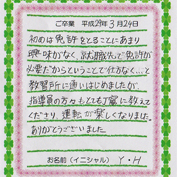 ご卒業 平成29年3月29日
初めは免許をとることにあまり
興味がなく、就職先で免許が
必要だからということで仕方なく…と
教習所に通いはじめましたが、
指導員の方々もとても丁寧に教えて
くださり、運転が楽しくなりました。
ありがとうございました。
お名前(イニシャル) Y・H